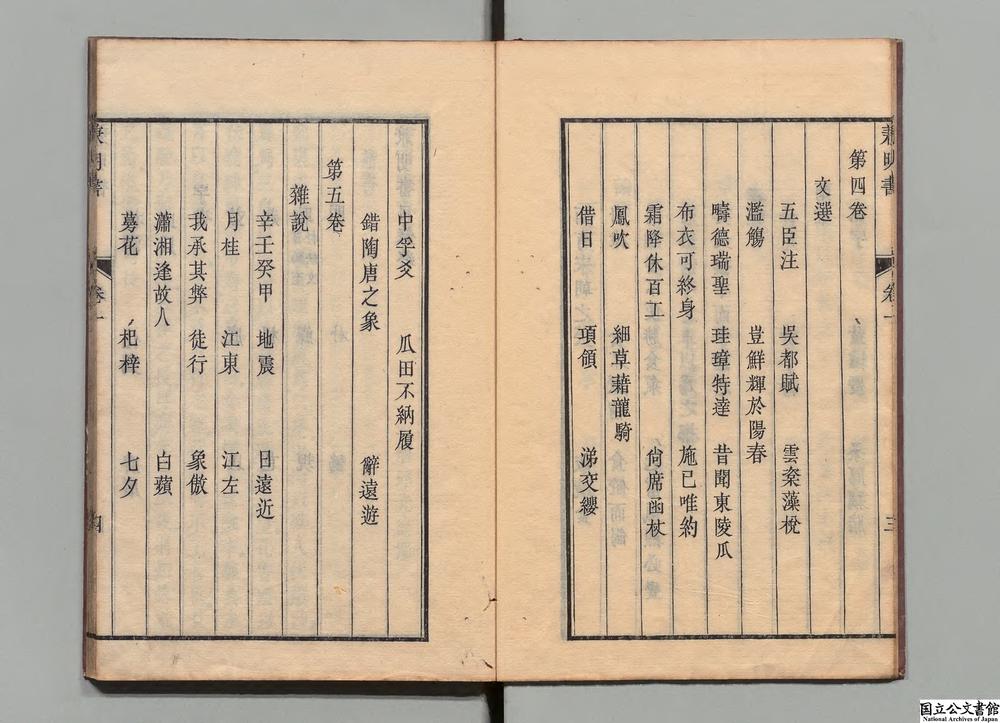 兼明書
卷一
三
第四卷
文選
五臣注　吳都賦　雲楶藻梲
濫觴　豈鮮輝於陽春
疇德瑞聖　珪璋特達　昔聞東陵瓜
布衣可終身　施已唯約
霜降休百工　尙席函杖
鳳吹　細草藉龍騎
借日　項領　涕交纓
中孚爻　瓜田不納履
錯陶唐之象　辭遠遊
第五卷
雜說
辛壬癸甲　地震　日遠近
月桂　江東　江左
我承其弊　徒行　象傲
瀟湘逢故人　白蘋
蕣花　杞梓　七夕
兼明書
卷一
四
国立公文書館
National Archives of Japan